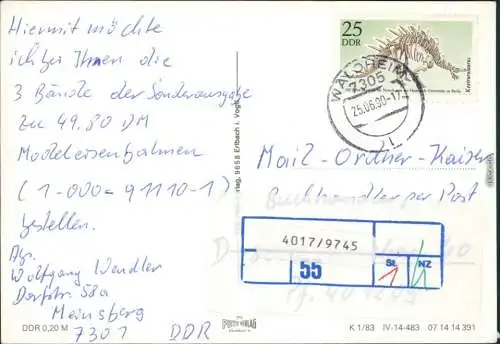 Hiermit möchte
ich bei Ihnen die
3 Bände der Sonderausgabe
zu 49.80 DM
Modelleisenbahnen
(1-000-91110-1)
bestellen.
Wolfgang Wendler
Dorfstr. 58a
Meinsberg
7301 DDR
DDR 0,20 M
Verlag 9658 Erlbach i. Vogtl.
25
DDR
Kentrosaurus
WALDHEIM
7305
25.06.90-17
Mail-Order-Kaiser
Buchhandlung per Post
4017/9745
55
St.
1
NZ
Pf. 401209
K 1/83 IV-14-483 07 14 14 391